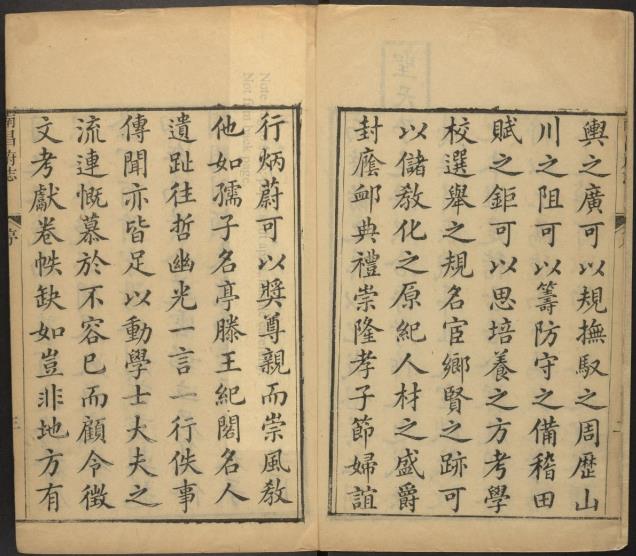 輿之廣可以規撫馭之周歴山
川之阻可以籌防守之備稽田
賦之鉅可以思培養之方考學
校選舉之規名宦鄉賢之跡可
以儲教化之原紀人材之盛爵
封廕䘏典禮崇隆孝子節婦誼
行炳蔚可以獎尊親而崇風教
他如孺子名亭滕王紀閣名人
遺趾往哲幽光一言一行佚事
傳聞亦皆足以動學士大夫之
流連慨慕於不容已而顧令徵
文考獻卷帙缺如豈非地方有
南昌府志
序
三